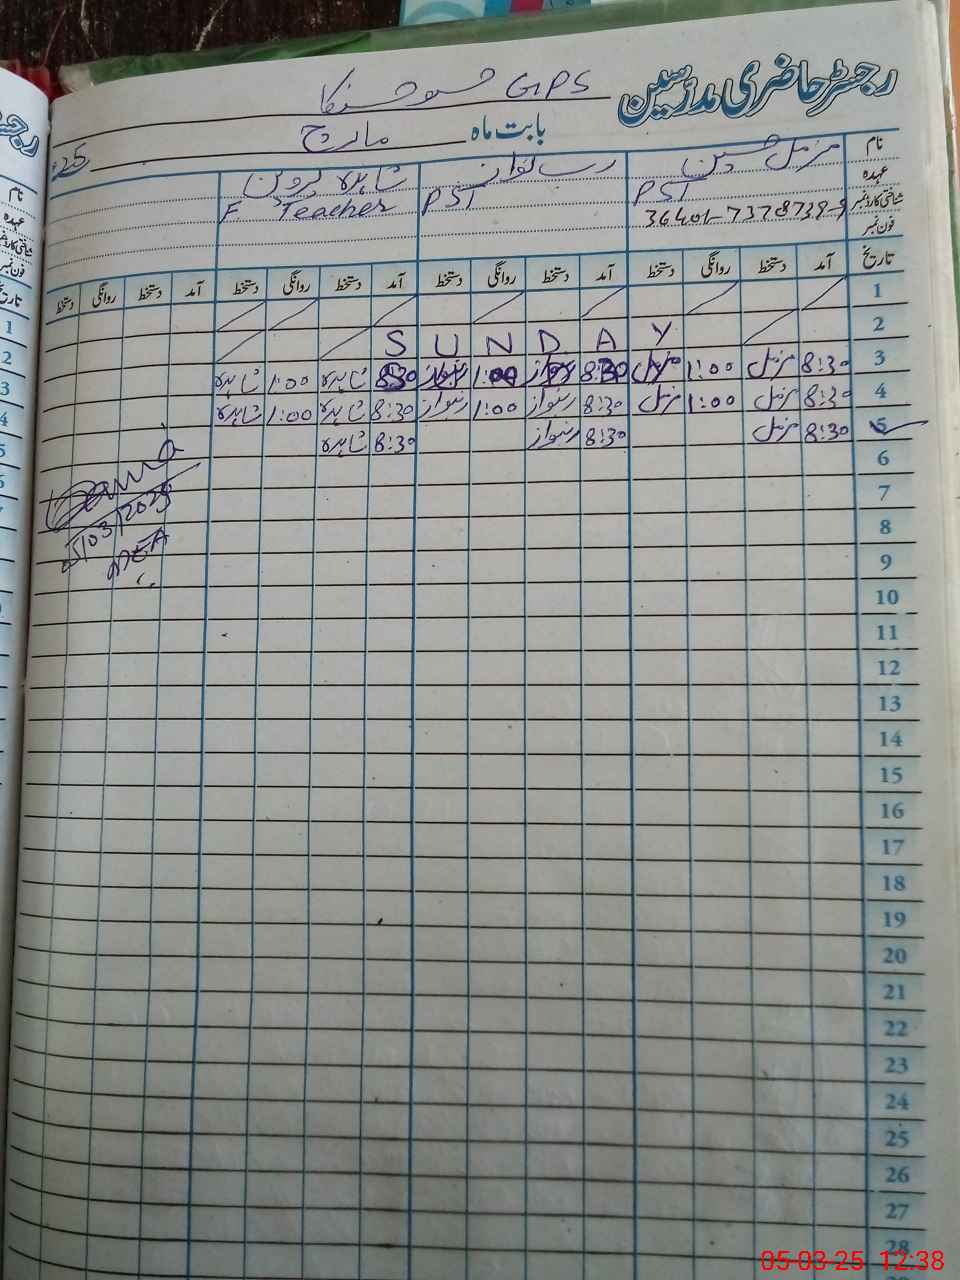 رجسٹر حاضری مدرسین GPS
بابت ماہ مارچ 25
نام مزمل حسین رب نواز شاہدہ پروین
عہدہ PST PST F Teacher
شناختی کارڈ نمبر 36401-7378739-9
فون نمبر
تاریخ آمد دستخط روانگی دستخط آمد دستخط روانگی دستخط آمد دستخط روانگی دستخط آمد دستخط روانگی دستخط
1
2 SUNDAY
3 8:30 مزمل 1:00 مزمل 8:30 ربنواز 1:00 ربنواز 8:30 شاہدہ 1:00 شاہدہ
4 8:30 مزمل 1:00 مزمل 8:30 ربنواز 1:00 ربنواز 8:30 شاہدہ 1:00 شاہدہ
5 8:30 مزمل 8:30 ربنواز 8:30 شاہدہ
6
7
5/03/2025
8
MEA
9
10
11
12
13
14
15
16
17
18
19
20
21
22
23
24
25
26
27
28
05-03-25 12:38